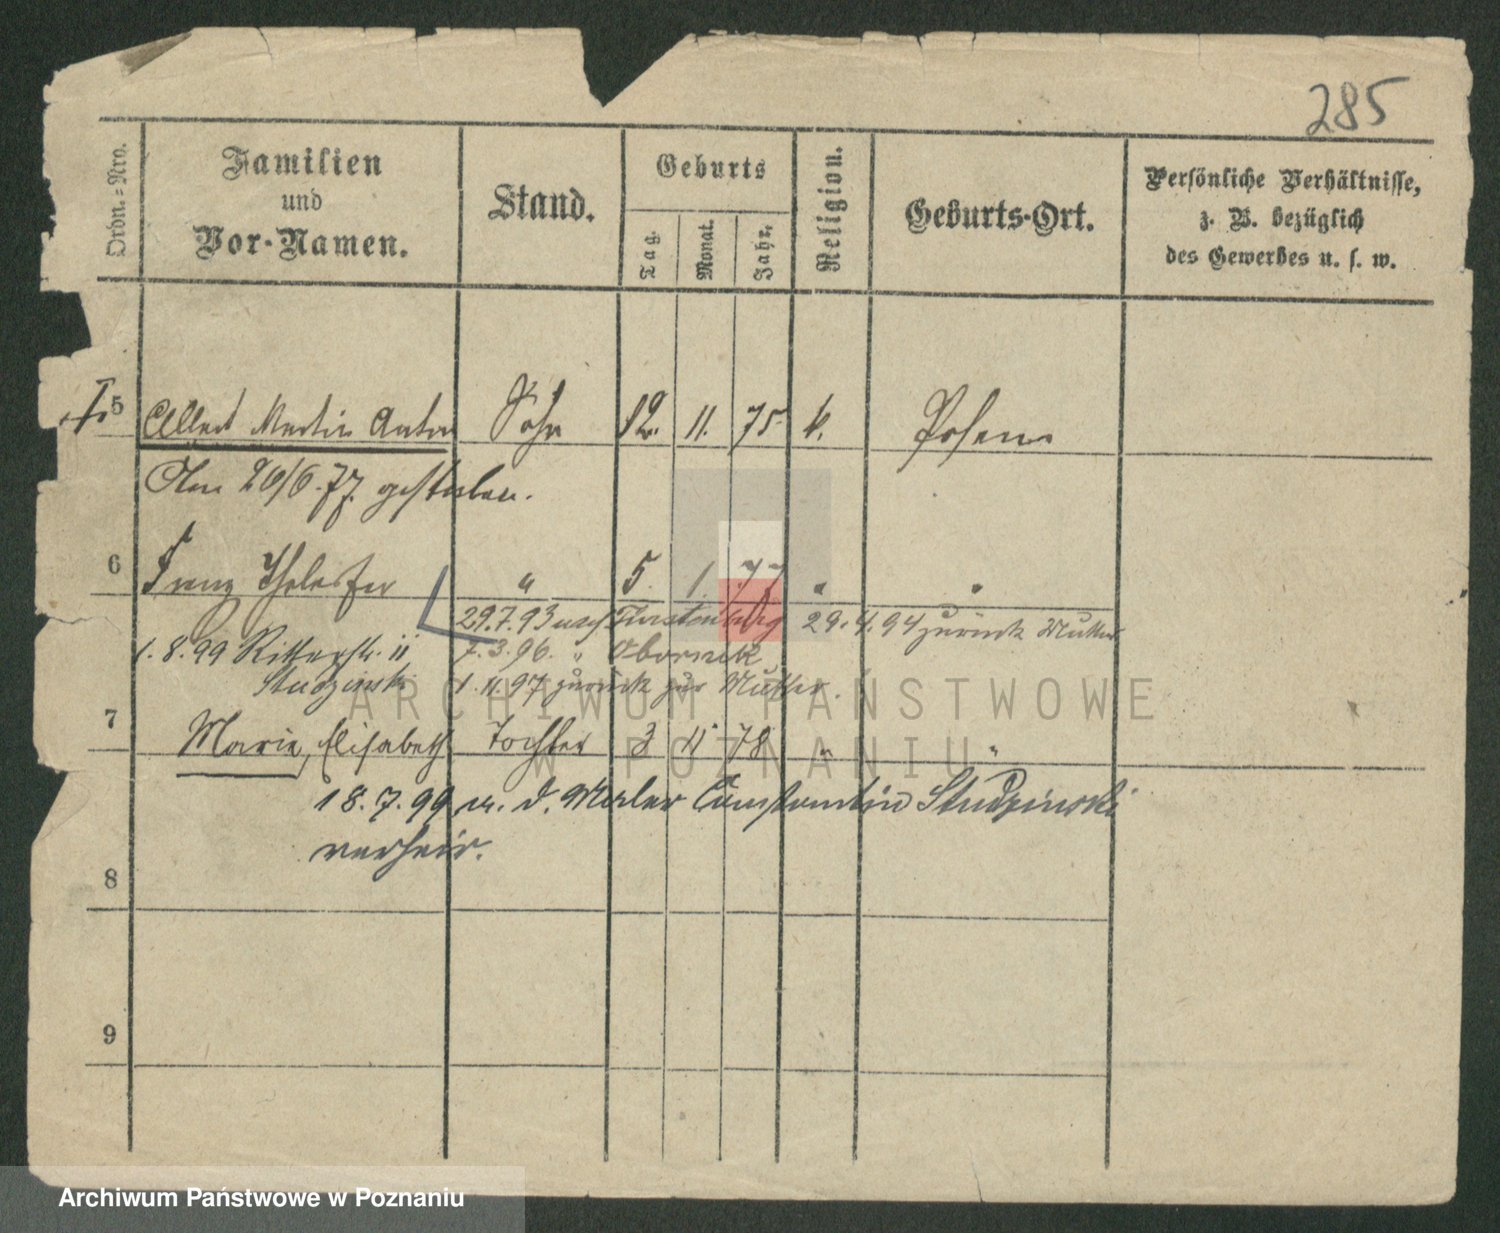 285
Ordn.=Nro.
Familien
und
Vor-Namen.
Stand.
Geburts
Tag.
Monat.
Jahr.
Religion.
Geburts-Ort.
Persönliche Verhältnisse,
z. B. bezüglich
des Gewerbes u. s. w.
5 Albert Martin Anton Sohn 12. 11. 75 k. Posen
Am 26/6.77. gestorben.
6 Franz " 5. 1. 77 " "
29.7.93 nach Fürstenberg 29.4.94 zurück Mutter
1.8.99 Ritterstr. 11 7.3.96. " Obornik
Studzinski 1.11.97 zurück zur Mutter.
7 Maria, Elisabeth Tochter 3 11 78 " "
18.7.99 m. d. Maler Constantin Studzinski
verheir.
8
9
ARCHIWUM PAŃSTWOWE
W POZNANIU
Archiwum Państwowe w Poznaniu